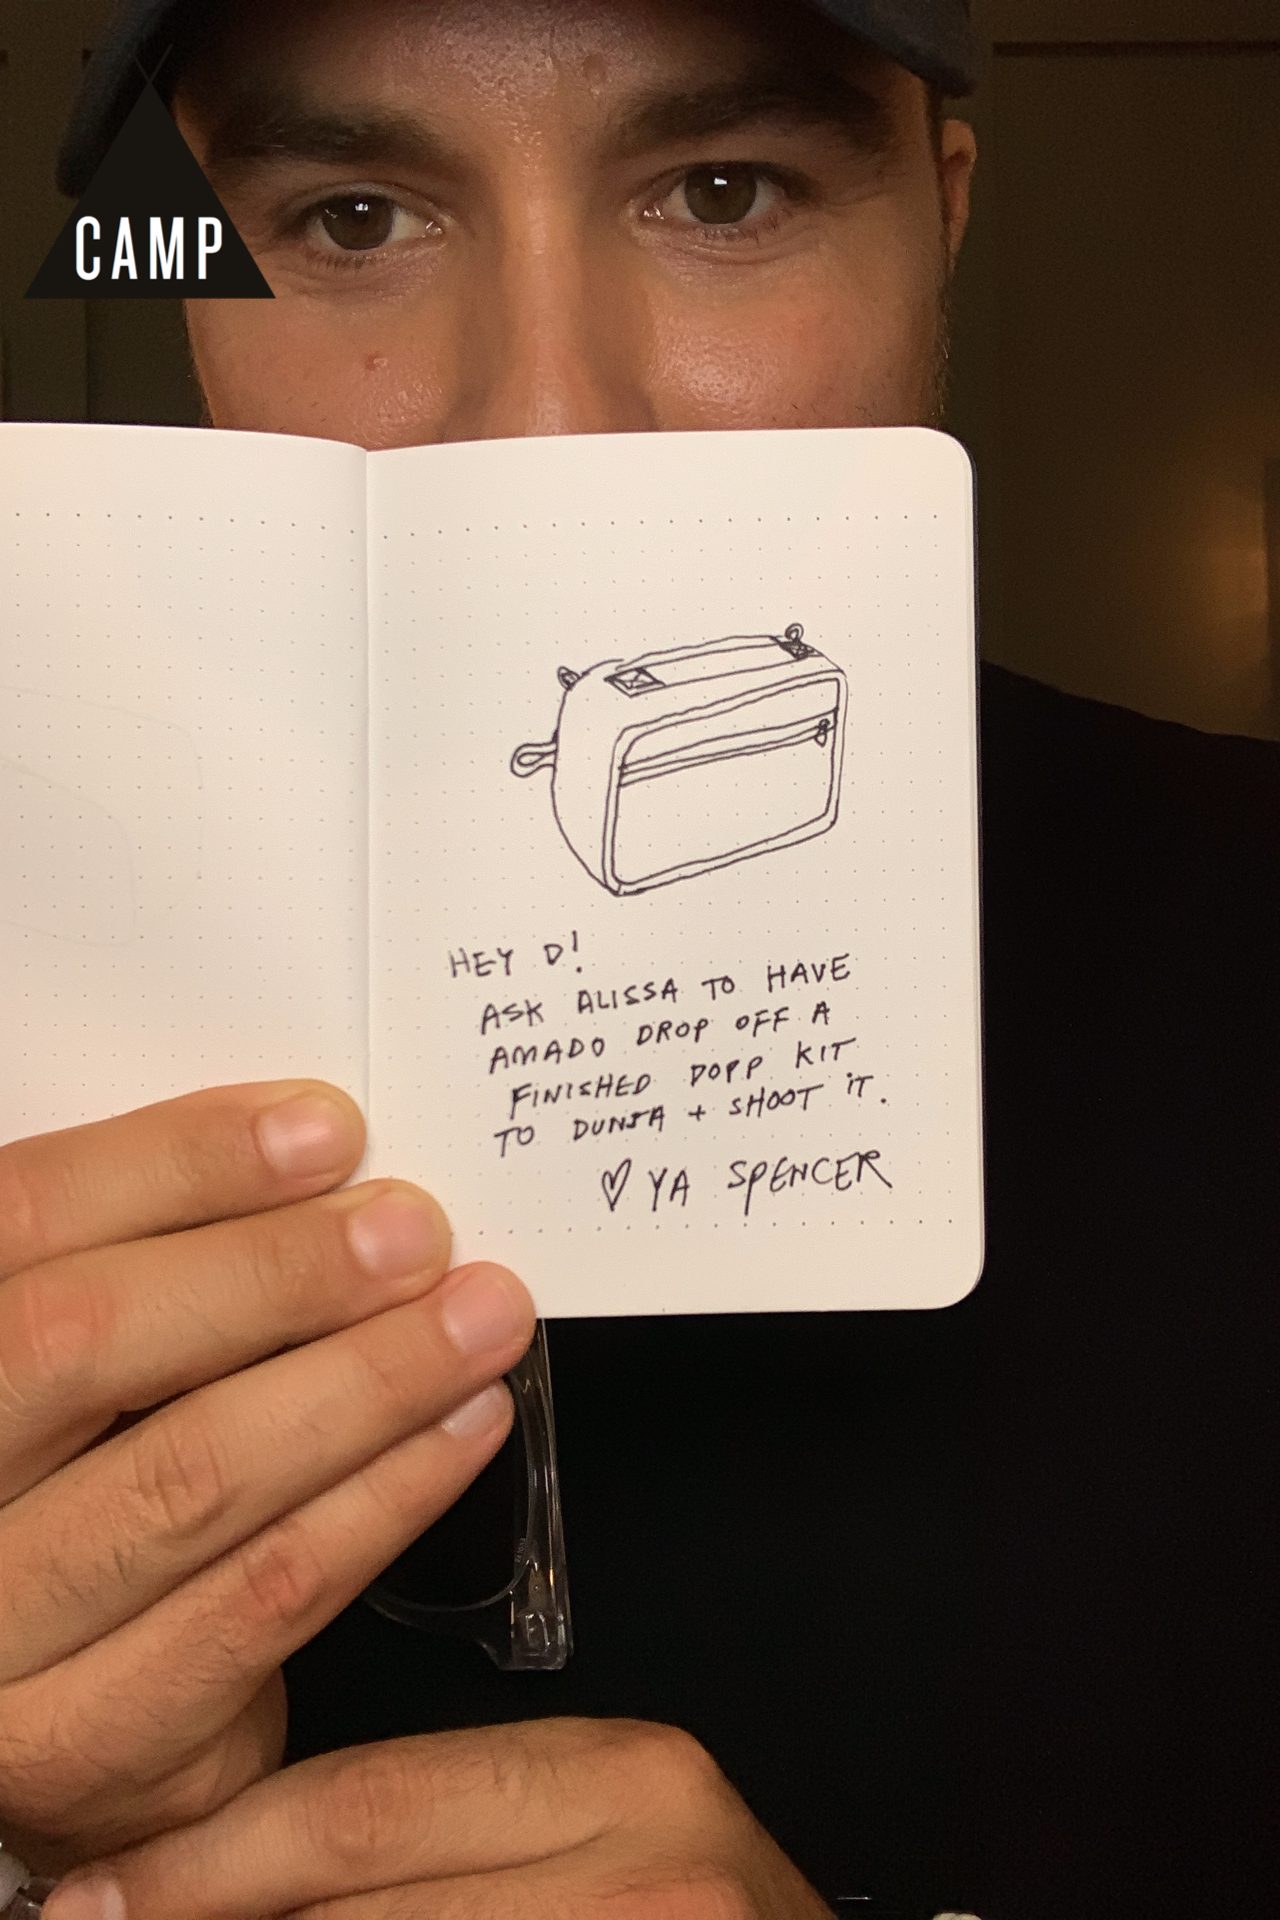 CAMP
HEY D!
ASK ALISSA TO HAVE
AMADO DROP OFF A
FINISHED DOPP KIT
TO DUNJA + SHOOT IT.
♡ YA SPENCER